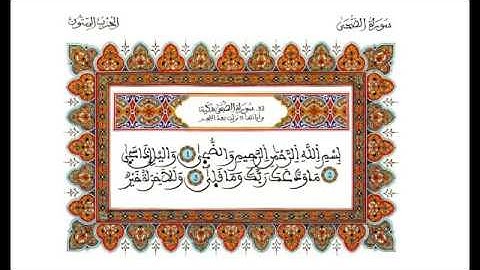 سورة الضحى
الحزب الستون
93 سورة الضحى مكية
وآياتها 11 نزلت بعد الفجر
بِسْمِ اللَّهِ الرَّحْمَٰنِ الرَّحِيمِ وَالضُّحَىٰ 1 وَالَّيْلِ إِذَا سَجَىٰ
2 مَا وَدَّعَكَ رَبُّكَ وَمَا قَلَىٰ 3 وَلَلَاخِرَةُ خَيْرٌ